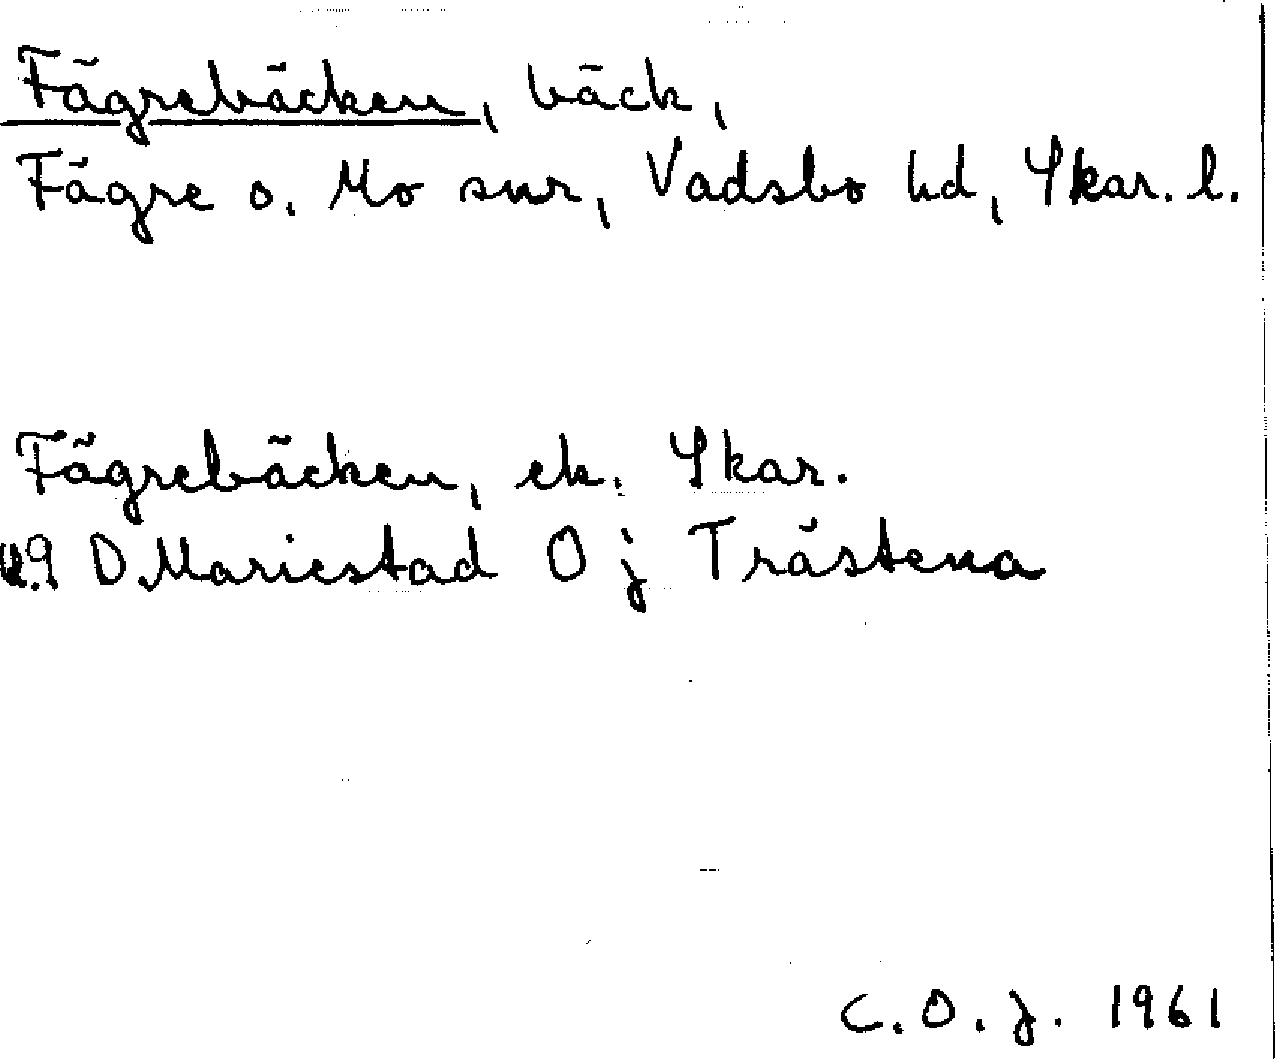 Fägrebäcken, bäck,
Fägre o. Mo snr, Vadsbo hd, Skar. l.
Fägrebäcken, ek. Skar.
D. Mariestad O j Trästena
C. O. J. 1961